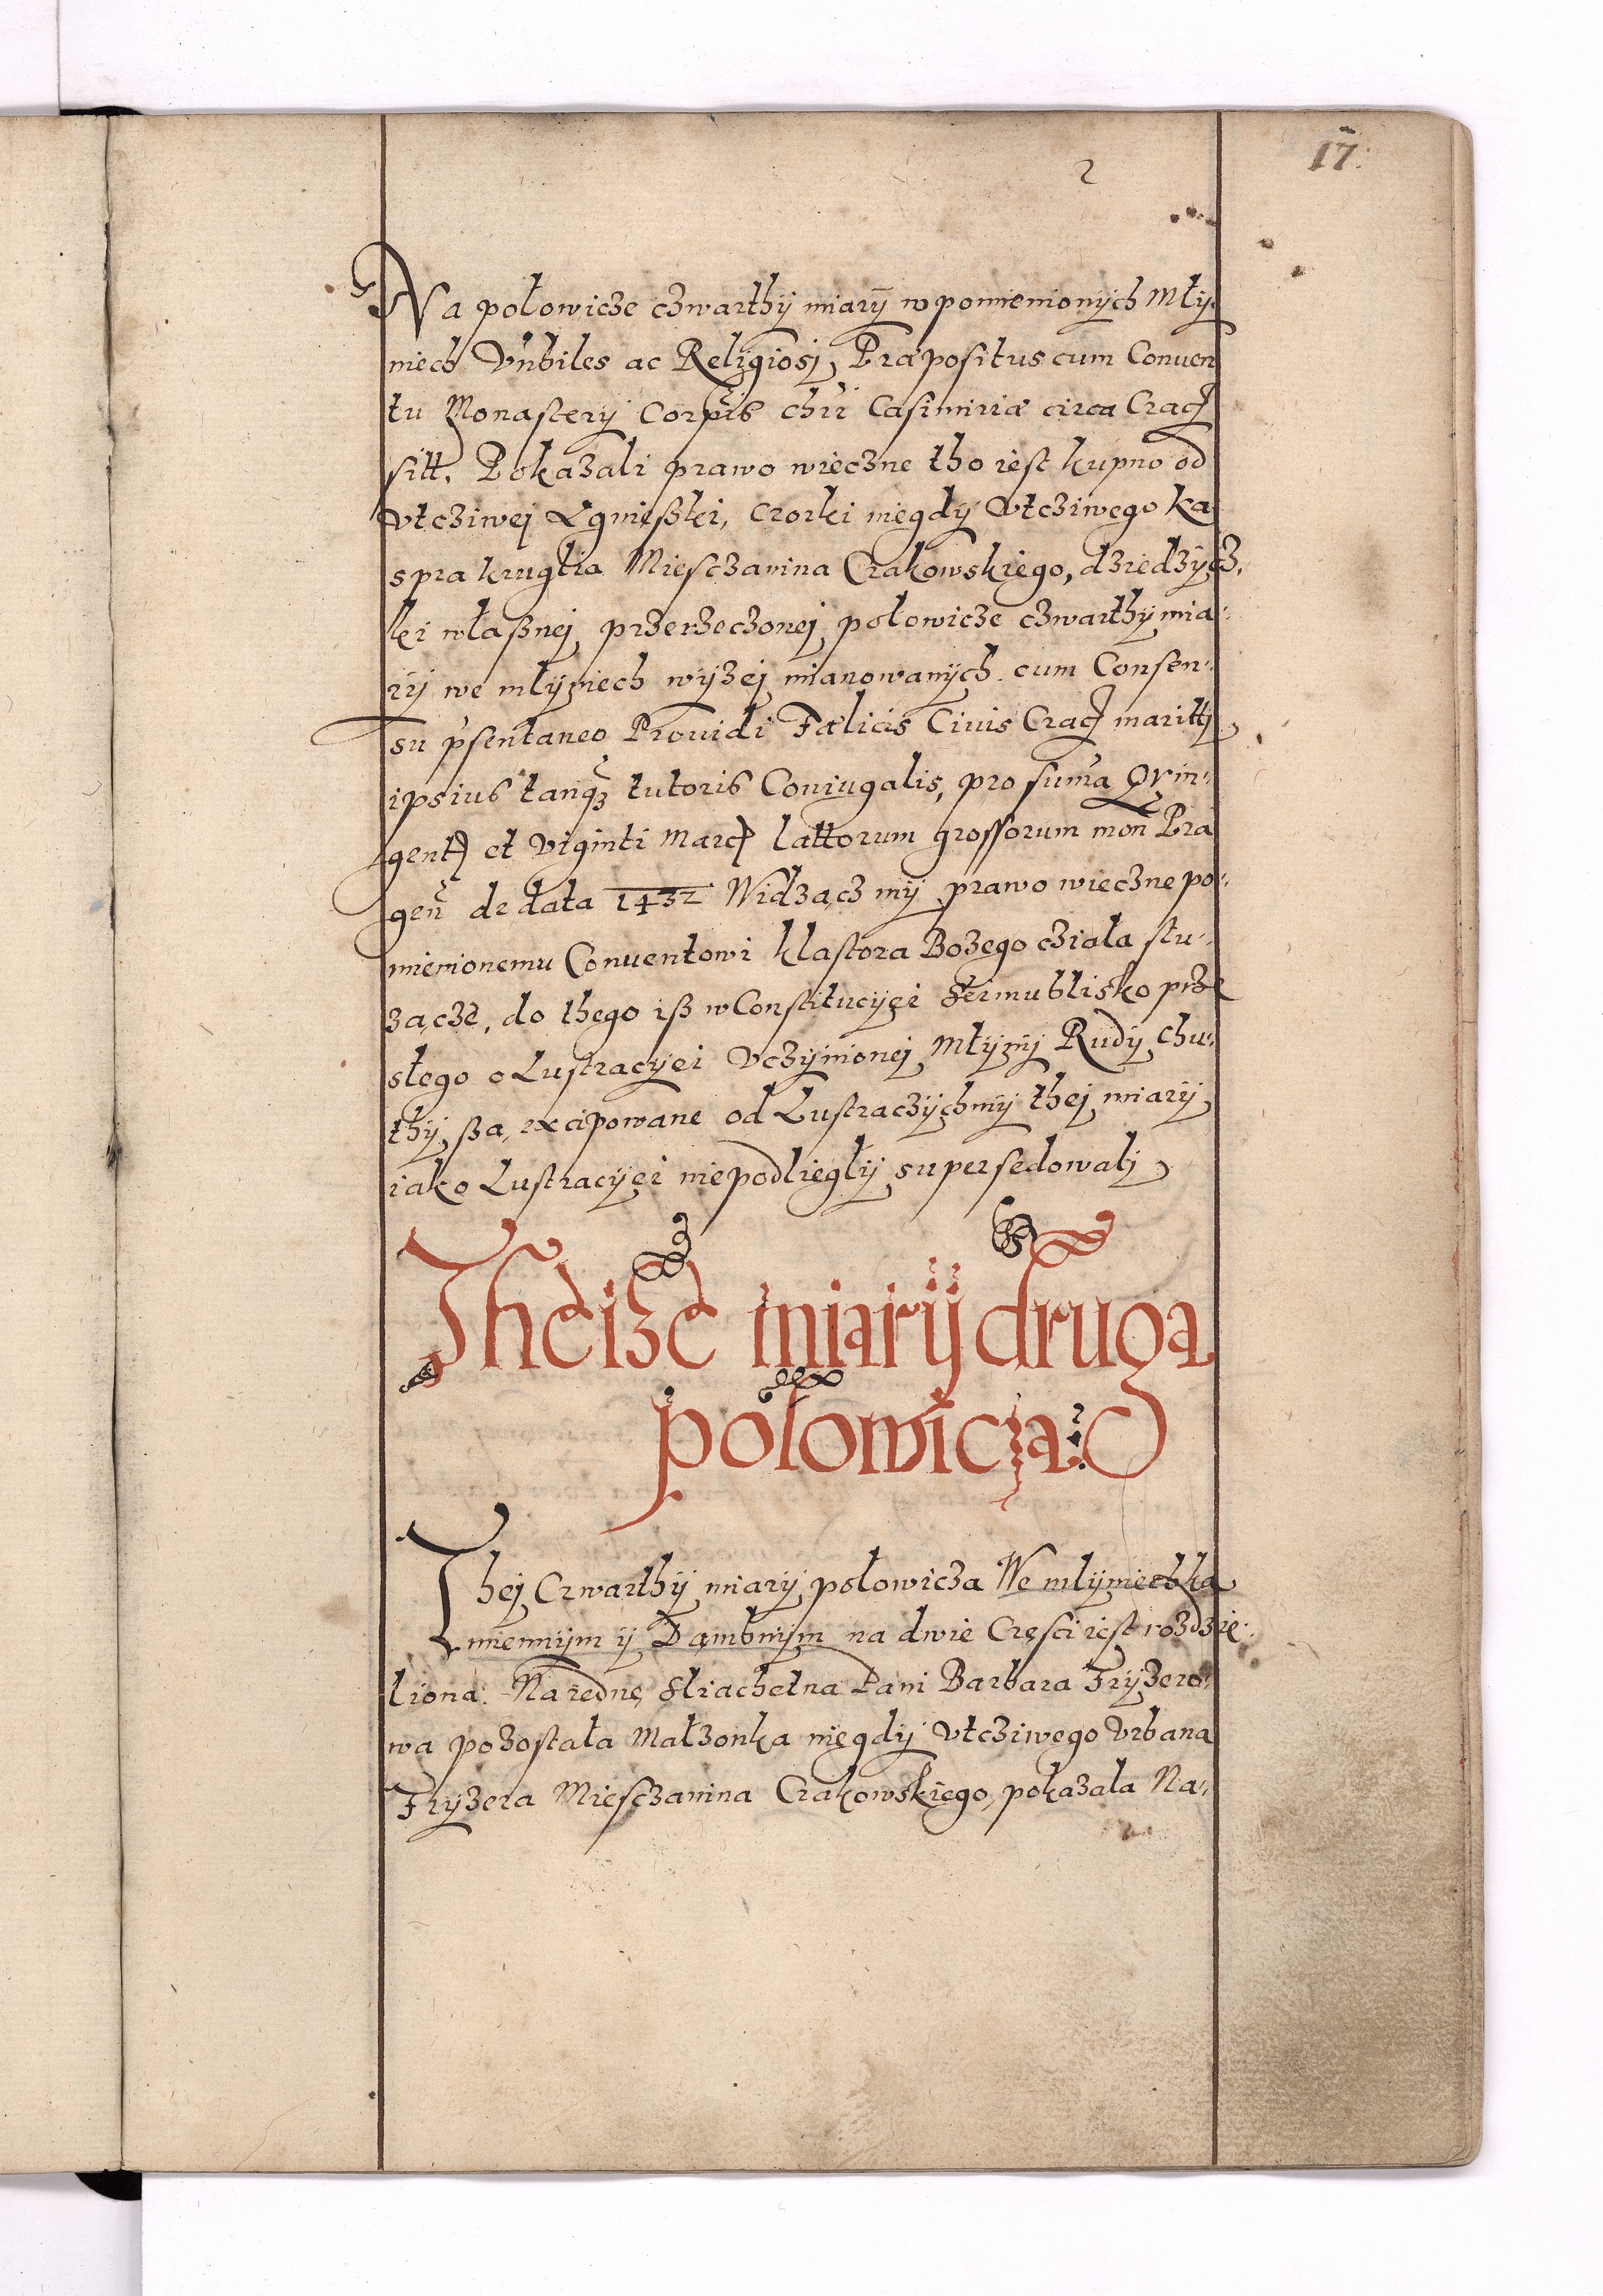 17.
Na połowicze czwarthÿ miarÿ w pomienionÿch Młÿ
niech Vnbiles ac Religiosj, Præpositus cum Conuen
tu Monasterÿ Corpris chri Casimiriæ circa Crac
sitt. Pokazali prawo wieczne tho iest kupno od
vtcziwej Agnießki, Czorki niegdÿ Vtcziwego Ka
spra kruglia Miesczanina Crakowskiego, dziedzÿcz,
ki własnej przerzeczonej połowicze czwarthÿ mia:
rÿ we młÿniech wÿzej mianowanÿch. cum Consen:
su psentaneo Prouidi Fælicis Ciuis Crac maritti
ipsius tanqz tutoris Coniugalis, pro suma Qvin:
gent et viginti Marc lattorum grossorum mon Pra
gen de data 1432 Widzącz mÿ prawo wieczne po:
mienionemu Conuentowi klastora Bozego cziała słu:
zącze, do thego iß w Constitucÿei Seimu blisko prze
słego o Lustracÿei Vczÿnionej Młÿnÿ Rudÿ, chu:
thÿ, są excipowane od Lustraczÿchmÿ thej miarÿ
iako Lustracÿei niepodliegłÿ supersedowalj
Theize miarÿ druga
połowicza:
Thej Czwarthÿ miarÿ połowicza We młÿniech ka
miennÿm ÿ Dambnÿm na dwie Częsci iest rozdzie:
liona: Na iednę Sliachetna Pani Barbara Frÿzero:
wa pozostała Małzonka niegdÿ Vtcziwego Vrbana
Frÿzera Miesczanina Crakowskiego, pokazała Na: